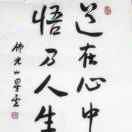 道在心中
悟乃人生
佛光山星雲